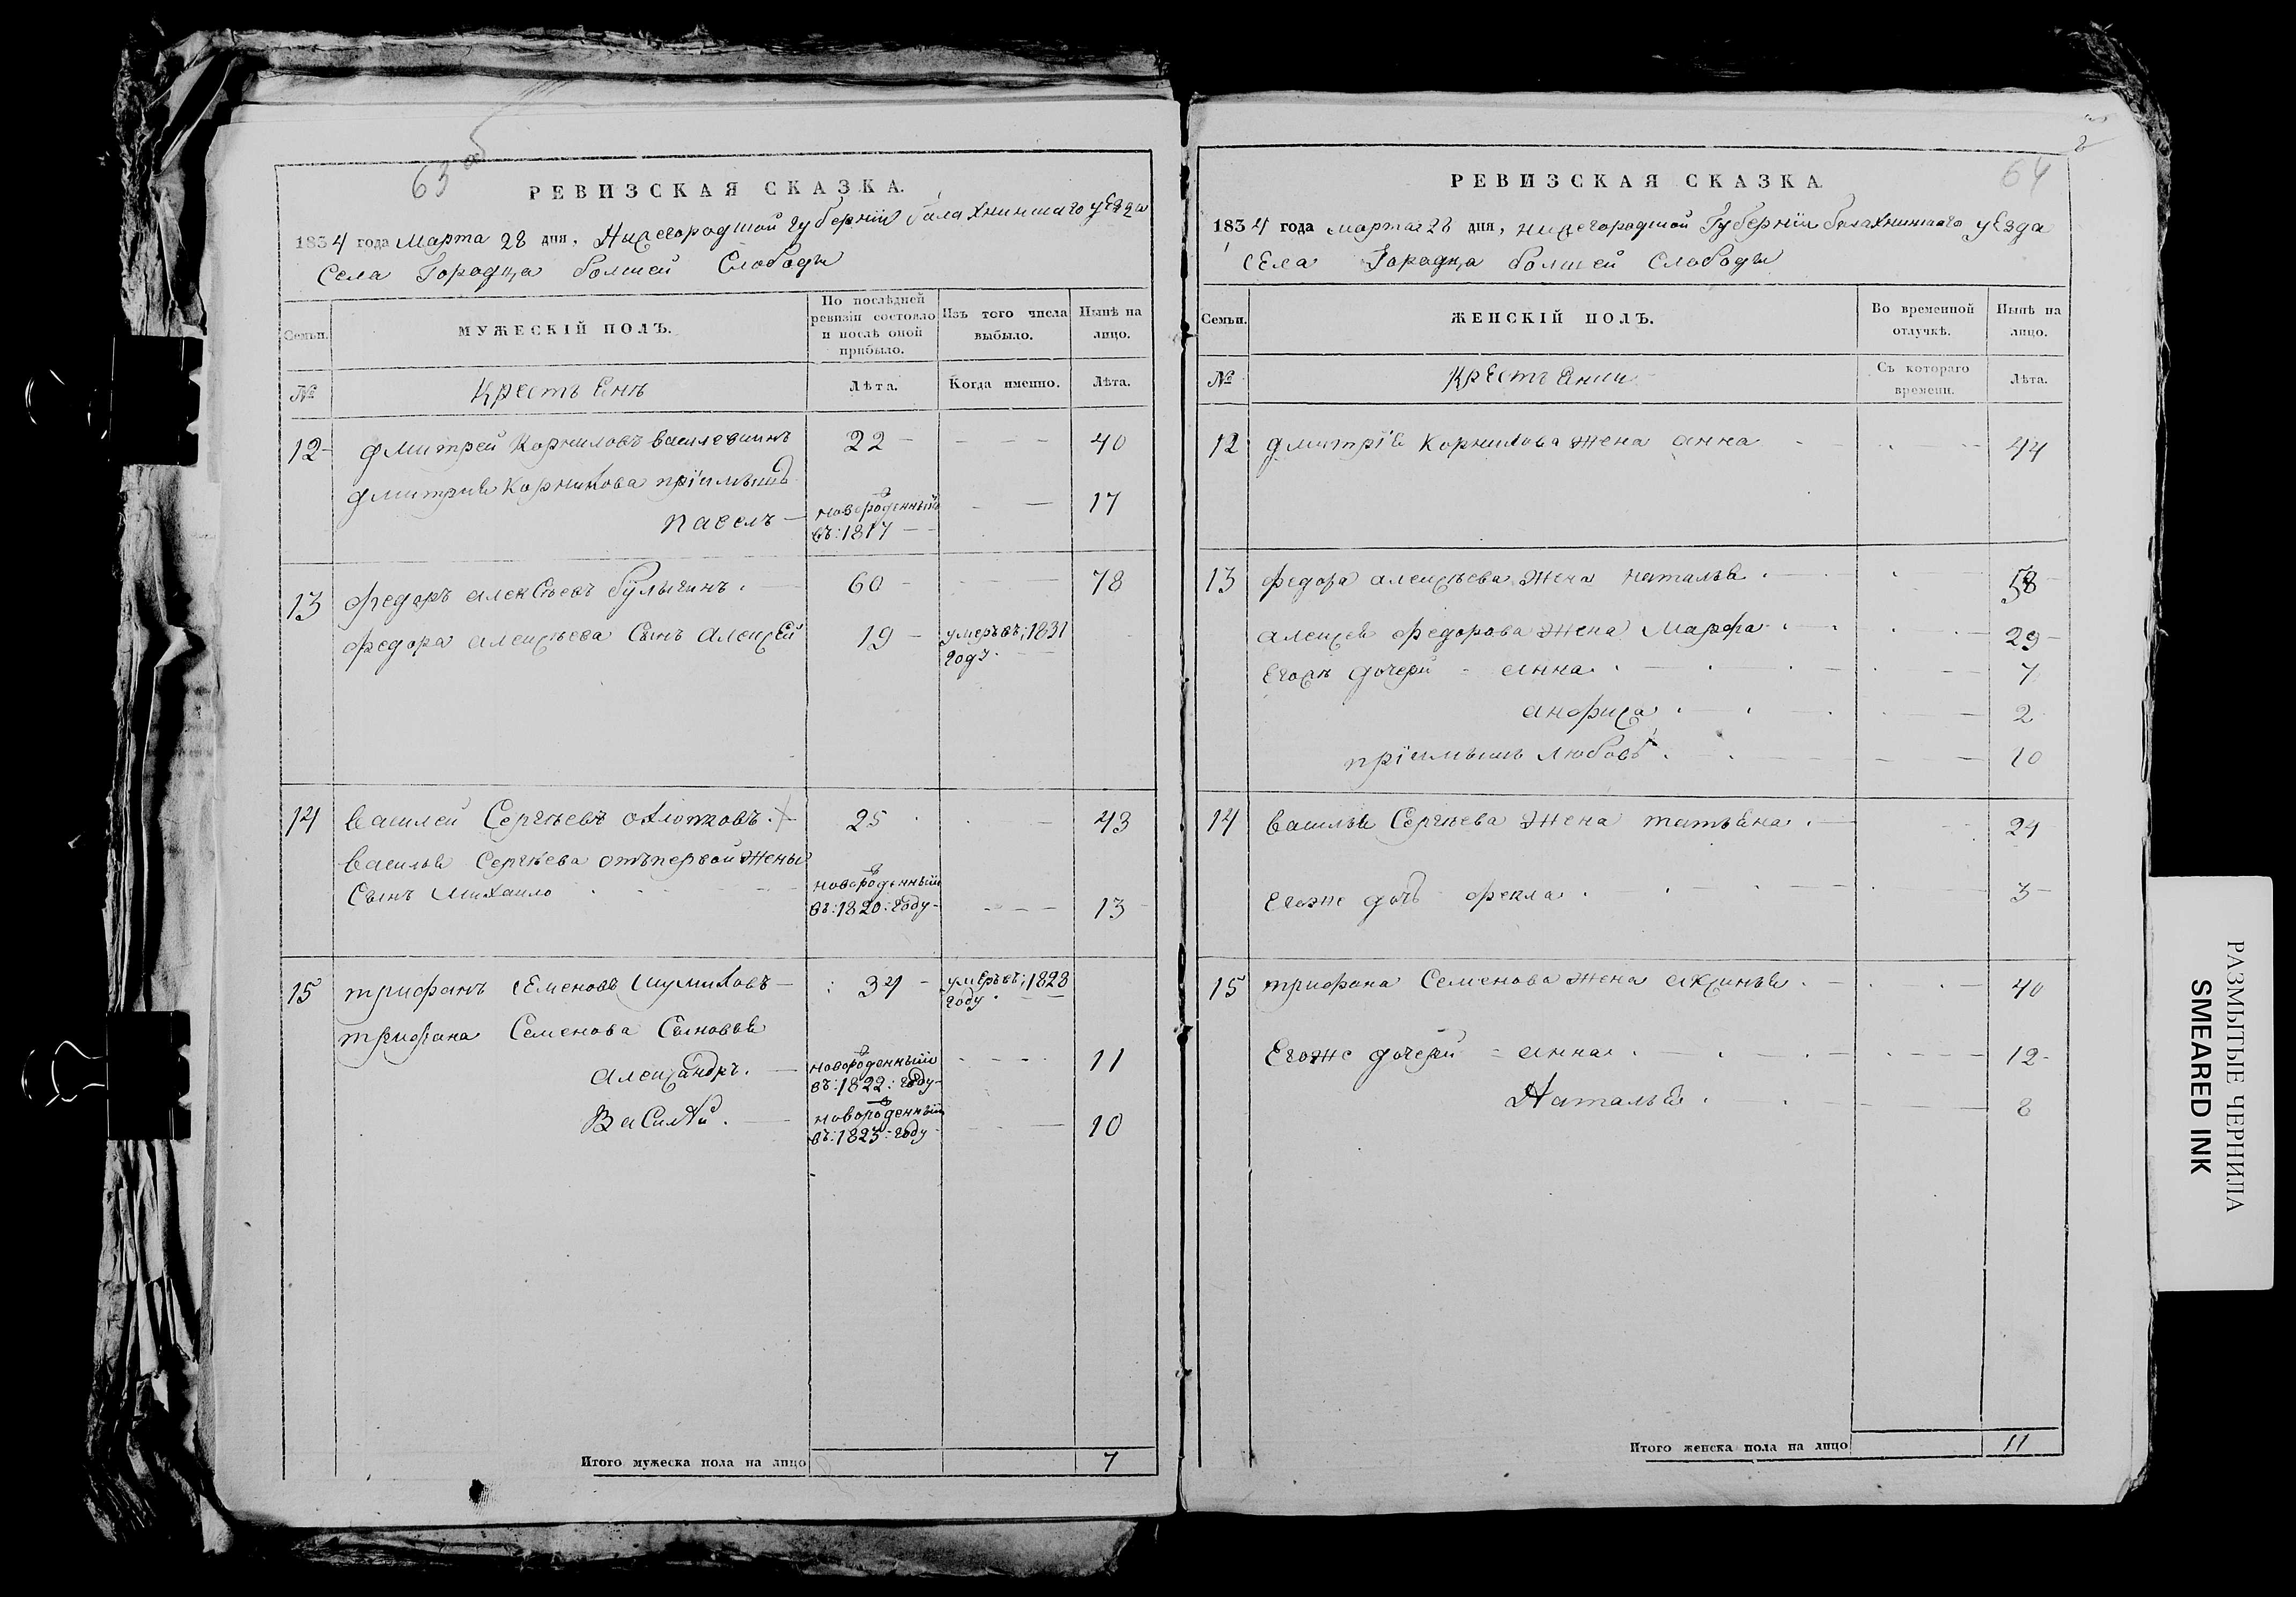 63 об
РЕВИЗСКАЯ СКАЗКА.
1834 года марта 28 дня, Нижегородской губернїи балахнинскаго уезда
села Городца болшей Слободы
Семьи.
МУЖЕСКІЙ ПОЛЪ.
По послѣдней ревизіи состояло и послѣ оной прибыло.
Изъ того числа выбыло.
Нынѣ на лицо.
№
крестьенъ
Лѣта.
Когда именно.
Лѣта.
12 дмитрей Корниловъ 22 40
дмитрия Корнилова прїимышъ
павелъ новорожденный въ: 1817 17
13 федоръ алексѣевъ булыгинъ. 60 78
федора алексѣева сынъ алексей 19 умеръ въ: 1831 году. 
14 василей Сергѣевъ охлопковъ. 25 43
василья Сергѣева отъ первой жены
сынъ михаило новорожденный въ: 1820: году 13
15 трифонъ семеновъ шумиловъ 34 умеръ въ: 1828 году.
трифона Семенова сыновья
александръ. новорожденный въ: 1822: году 11
Василей. новорожденный въ: 1823: году 10
Итого мужеска пола на лицо 7
64
РЕВИЗСКАЯ СКАЗКА
1834 года марта 28 дня, нижегородской Губернїи балахнинскаго уезда
села Городца болшей слободы
Семьи.
ЖЕНСКІЙ ПОЛЪ.
Во временной отлучкѣ.
Нынѣ на лицо.
№
Крестьенки
Съ котораго времени.
Лѣта.
12 дмитрїя Корнилова жена анна 44
13 федора алексѣева жена наталья. 58
алексея федорова жена Марфа. 29
дочери анна. 7
анфиса. 2
прїимышъ любовь. 10
14 василья Сергѣева жена татьяна. 24
Егоже дочь фекла. 3
15 трифона Семенова жена аксинья. 40
Егоже дочери анна. 12
Наталья. 8
Итого женска пола на лицо 11
РАЗМЫТЫЕ ЧЕРНИЛА
SMEARED INK